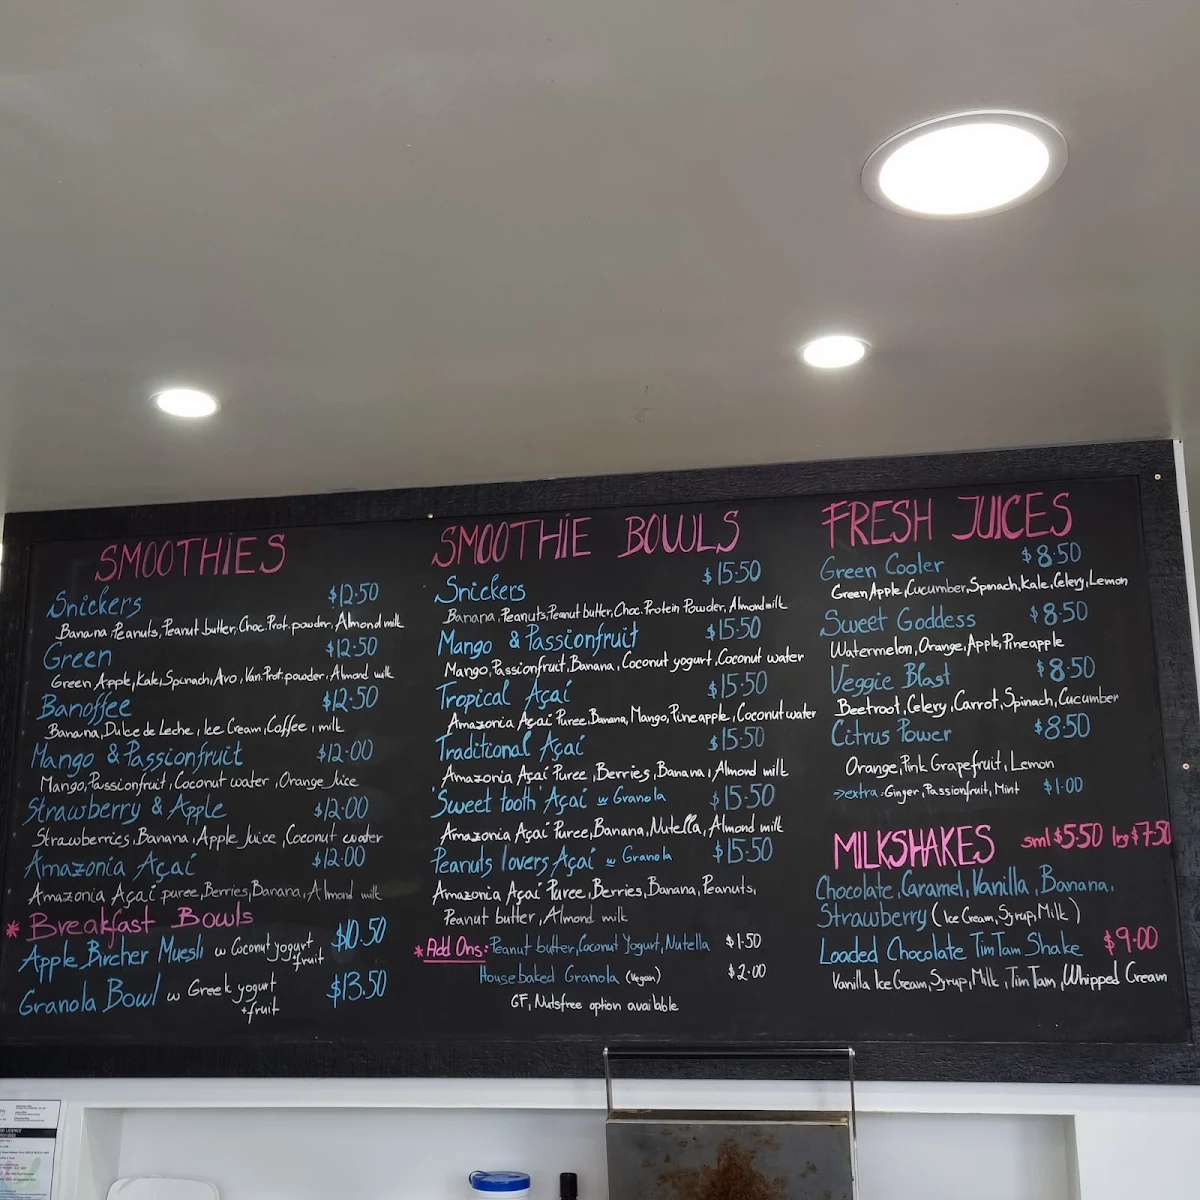 SMOOTHiES
Snickers $12.50
Banana, Peanuts, Peanut butter, Choc.Prot.powder, Almond milk
Green $12.50
Green Apple, Kale, Spinach, Avo, Van.Prot.powder, Almond milk
Banoffee $12.50
Banana, Dulce de Leche, Ice Cream, Coffee, milk
Mango & Passionfruit $12.00
Mango, Passionfruit, Coconut water, Orange Juice
Strawberry & Apple $12.00
Strawberries, Banana, Apple Juice, Coconut water
Amazonia Açaí $12.00
Amazonia Açaí puree, Berries, Banana, Almond milk
* Breakfast Bowls
Apple Bircher Muesli w Coconut yogurt, fruit $10.50
Granola Bowl w Greek yogurt +fruit $13.50
SMOOTHiE BOWLS
Snickers $15.50
Banana, Peanuts, Peanut butter, Choc.Protein Powder, Almond milk
Mango & Passionfruit $15.50
Mango, Passionfruit, Banana, Coconut yogurt, Coconut water
Tropical Açaí $15.50
Amazonia Açaí Puree, Banana, Mango, Pineapple, Coconut water
Traditional Açaí $15.50
Amazonia Açaí Puree, Berries, Banana, Almond milk
'Sweet tooth' Açaí w Granola $15.50
Amazonia Açaí Puree, Banana, Nutella, Almond milk
Peanuts lovers Açaí w Granola $15.50
Amazonia Açaí Puree, Berries, Banana, Peanuts,
Peanut butter, Almond milk
* Add Ons: Peanut butter, Coconut Yogurt, Nutella $1.50
House baked Granola (Vegan) $2.00
GF, Nutsfree option available
FRESH JUICES
Green Cooler $8.50
Green Apple, Cucumber, Spinach, Kale, Celery, Lemon
Sweet Goddess $8.50
Watermelon, Orange, Apple, Pineapple
Veggie Blast $8.50
Beetroot, Celery, Carrot, Spinach, Cucumber
Citrus Power $8.50
Orange, Pink Grapefruit, Lemon
->extra: Ginger, Passionfruit, Mint $1.00
MILKSHAKES sml $5.50 lrg $7.50
Chocolate, Caramel, Vanilla, Banana,
Strawberry (Ice Cream, Syrup, Milk)
Loaded Chocolate TimTam Shake $9.00
Vanilla Ice Cream, Syrup, Milk, Tim Tam, Whipped Cream